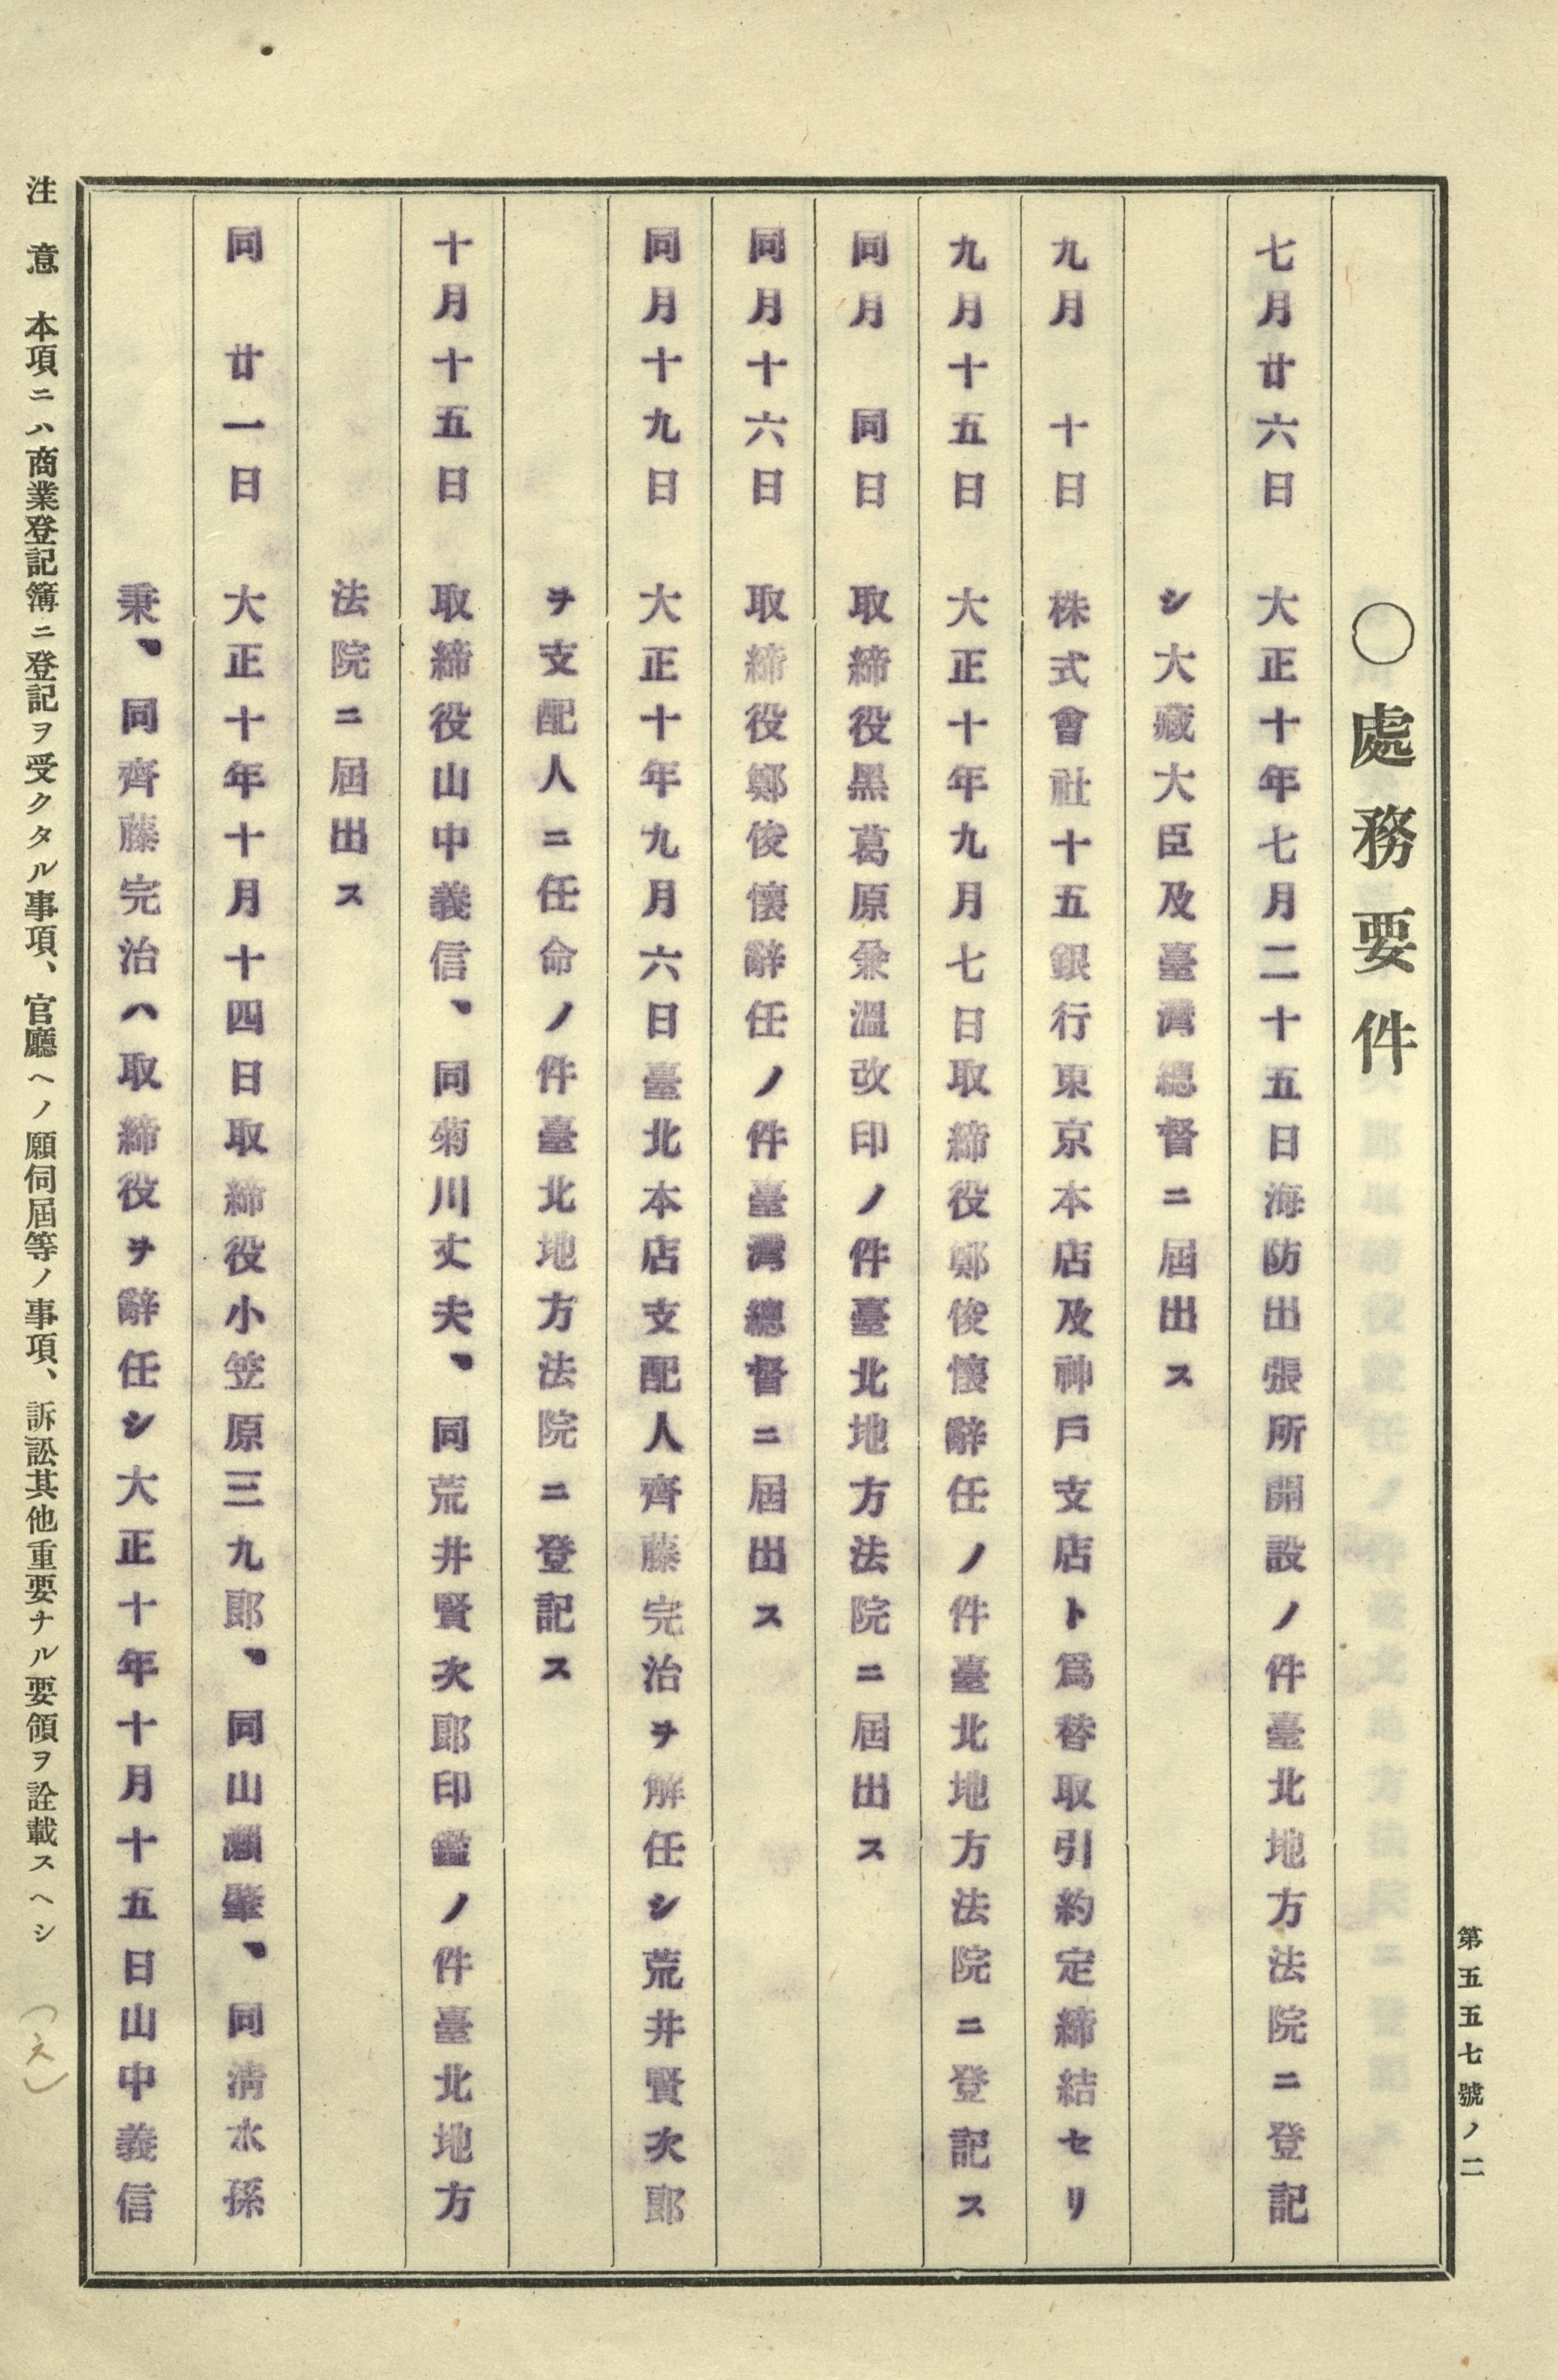 第五五七號ノ二
〇處務要件
七月廿六日 大正十年七月二十五日海防出張所開設ノ件臺北地方法院ニ登記
シ大藏大臣及臺灣總督ニ屆出ス
九月 十日 株式會社十五銀行東京本店及神戶支店ト爲替取引約定締結セリ
九月十五日 大正十年九月七日取締役鄭俊懷辭任ノ件臺北地方法院ニ登記ス
同月 同日 取締役黑葛原兼溫改印ノ件臺北地方法院ニ屆出ス
同月十六日 取締役鄭俊懷辭任ノ件臺灣總督ニ屆出ス
同月十九日 大正十年九月六日臺北本店支配人齊藤完治ヲ解任シ荒井賢次郎
ヲ支配人ニ任命ノ件臺北地方法院ニ登記ス
十月十五日 取締役山中義信、同菊川丈夫、同荒井賢次郎印鑑ノ件臺北地方
法院ニ屆出ス
同 廿一日 大正十年十月十四日取締役小笠原三九郎、同山瀨肇、同淸水孫
秉、同齊藤完治ハ取締役ヲ辭任シ大正十年十月十五日山中義信
注意 本項ニハ商業登記簿ニ登記ヲ受クタル事項、官廳ヘノ願伺屆等ノ事項、訴訟其他重要ナル要領ヲ詮載スヘシ